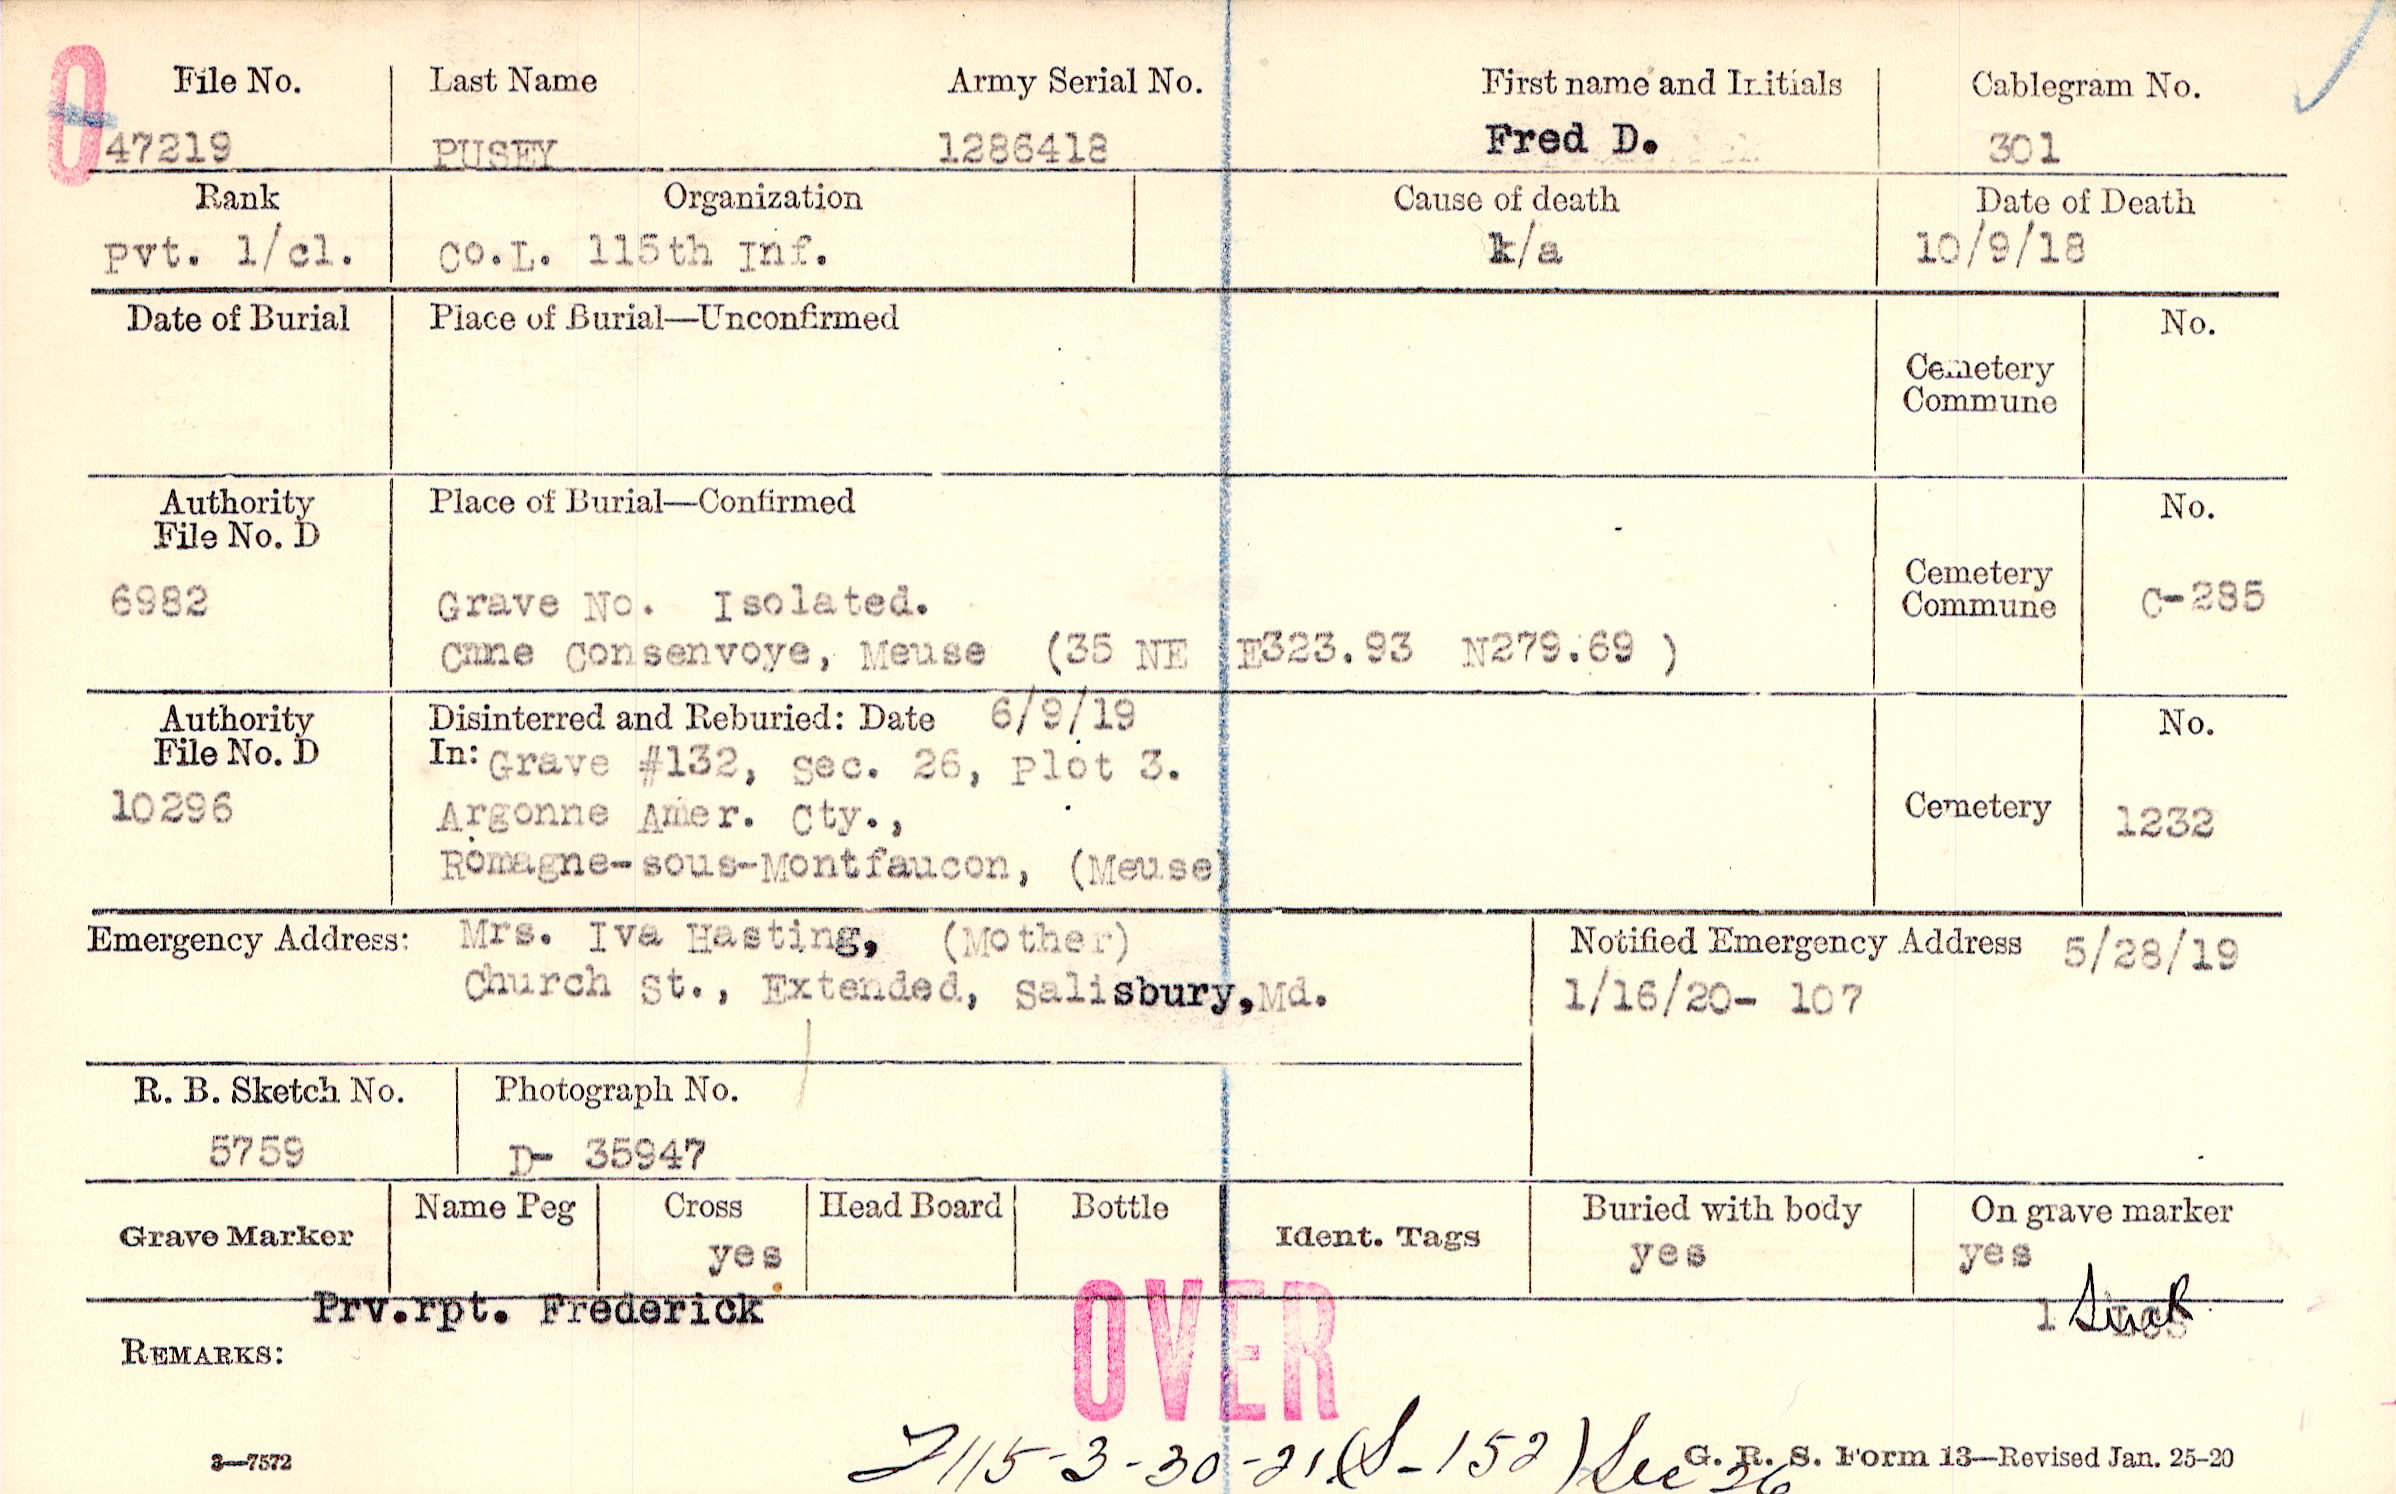 O
File No. Last Name Army Serial No. First name and Initials Cablegram No.
47219 PUSEY 1286418 Fred D. 301
Rank Organization Cause of death Date of Death
Pvt. 1/cl. Co.L. 115th Inf. k/a 10/9/18
Date of Burial Place of Burial—Unconfirmed No.
Cemetery
Commune
Authority Place of Burial—Confirmed No.
File No. D
6982 Grave No. Isolated. Cemetery
Commune C-285
Cmne Consenvoye, Meuse (35 NE E323.93 N279.69 )
Authority Disinterred and Reburied: Date 6/9/19 No.
File No. D In: Grave #132, Sec. 26, Plot 3.
10296 Argonne Amer. Cty., Cemetery 1232
Romagne-sous-Montfaucon, (Meuse)
Emergency Address: Mrs. Iva Hasting, (Mother) Notified Emergency Address 5/28/19
Church St., Extended, Salisbury,Md. 1/16/20- 107
R. B. Sketch No. Photograph No.
5759 D- 35947
Grave Marker Name Peg Cross Head Board Bottle Ident. Tags Buried with body On grave marker
yes yes yes
Prv.rpt. Frederick
OVER
REMARKS:
3—7572 115-3-30-21(S-152) Sec 26 G. R. S. Form 13—Revised Jan. 25-20